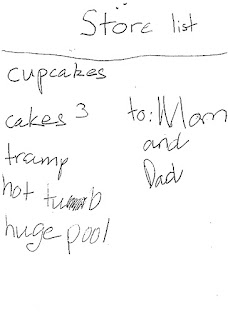 Store list
cupcakes
cakes 3
tramp
hot tub
huge pool
to: Mom
and
Dad